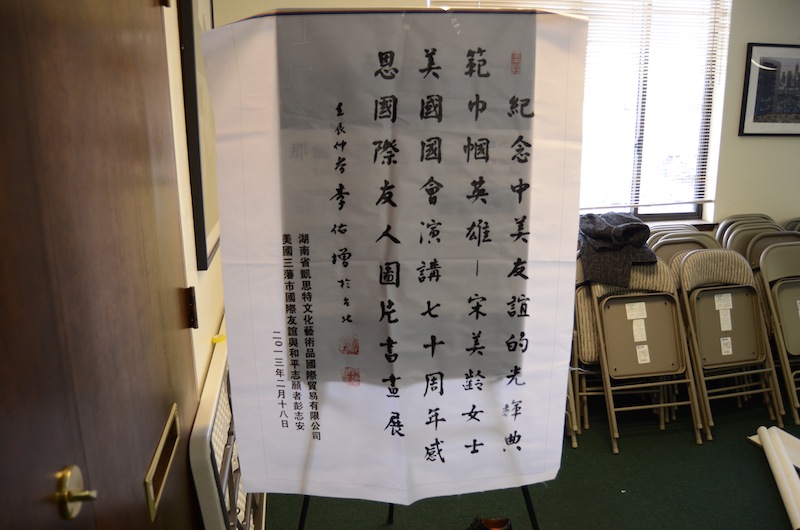 紀念中美友誼的光輝典
範巾幗英雄－宋美齡女士
美國國會演講七十周年感
恩國際友人圖片書畫展
壬辰仲冬李佑增於台北
湖南省凱思特文化藝術品國際貿易有限公司
美國三藩市國際友誼與和平志願者彭志安
二〇一三年二月十八日